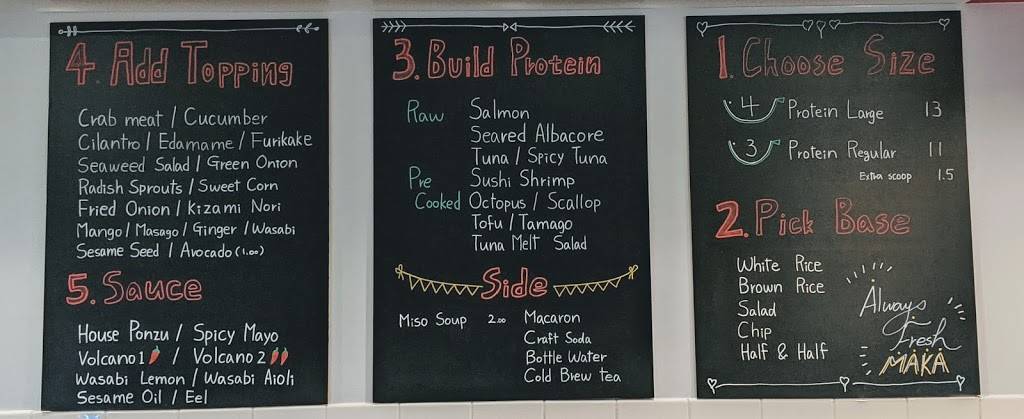 4. Add Topping
Crab meat / Cucumber
Cilantro / Edamame / Furikake
Seaweed Salad / Green Onion
Radish Sprouts / Sweet Corn
Fried Onion / Kizami Nori
Mango / Masago / Ginger / Wasabi
Sesame Seed / Avocado (1.00)
5. Sauce
House Ponzu / Spicy Mayo
Volcano 1 / Volcano 2
Wasabi Lemon / Wasabi Aioli
Sesame Oil / Eel
3. Build Protein
Raw Salmon
Seared Albacore
Tuna / Spicy Tuna
Pre Sushi Shrimp
Cooked Octopus / Scallop
Tofu / Tamago
Tuna Melt Salad
Side
Miso Soup 2.00 Macaron
Craft Soda
Bottle Water
Cold Brew tea
1. Choose Size
4 Protein Large 13
3 Protein Regular 11
Extra scoop 1.5
2. Pick Base
White Rice
Brown Rice
Salad
Chip
Half & Half
Always
Fresh
MAKA